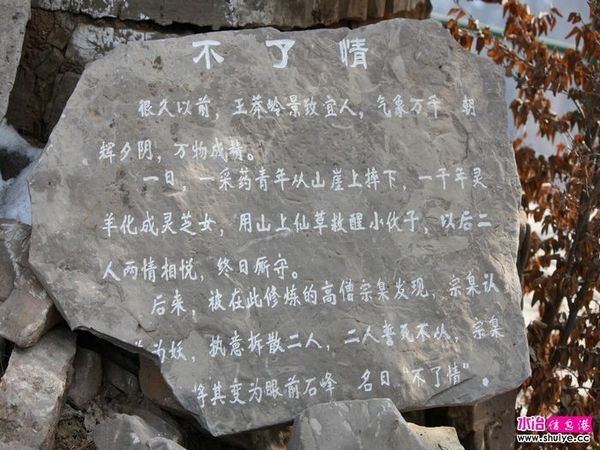 不了情
很久以前，王莽岭景致宜人，气象万千 朝
辉夕阴，万物成精。
一日，一采药青年从山崖上摔下，一千年灵
羊化成灵芝女，用山上仙草救醒小伙子，以后二
人两情相悦，终日厮守。
后来，被在此修炼的高僧宗臬发现，宗臬认
为妖，执意拆散二人，二人誓死不从，宗臬
将其变为眼前石峰 名曰 不了情"。
水冶信息港
www.shuiye.cc